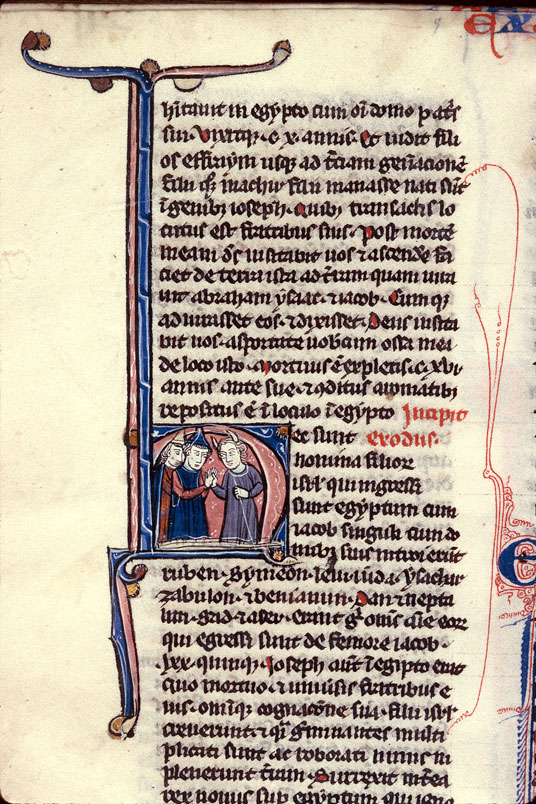 EX
hitauit in egypto cum oī domo patris
sui. Vixitqꝫ .c.x. annis. Et uidit fili
os effraym usqꝫ ad tꝰciam gen̄acionē
filii qꝫ machir filii manasse nati sūt
ī genibꝫ ioseph. Quibꝫ transactis lo
cutus est fratribus suis. Post mortē
meam dꝰs uisitabit uos ⁊ ascende fa
ciet de terra ista ad tꝰram quam iura
uit abraham ysaac ⁊ iacob. Cum qꝫ
adiurasset eos. ⁊ dixisset. Deus uisita
bit uos. asportate uobcum ossa mea
de loco isto. Mortuus ē expletis .c.x.
annis uite sue ⁊ ꝯditus aromatibꝫ
repositus ē ī loculo ī egypto Incipit
ec sunt exodus.
nomina filior
isrl̄ qui ingressi
sunt egyptum cum
iacob singuli cum do
mibꝫ suis introierūt
ruben. Symeon. leui. iuda. ysachar
zabulon. ⁊ beniamin. Dan ⁊ nepta
lim. gad ⁊ aser. erant gͦ omīs aīe eor
qui egressi sunt de femore iacob.
.lxx. quinqꝫ. Ioseph aūt ī egipto erat
Quo mortuo ⁊ uniuersis fratribus e
ius. omīqꝫ cognacōne sua. filii isrl̄
creuerunt ⁊ qͣi gīminantes multi
plicati sunt ac roborati nimis im
pleuerunt tꝰram. Surrexit intꝰea
rex nouus sup egyptum qui igno